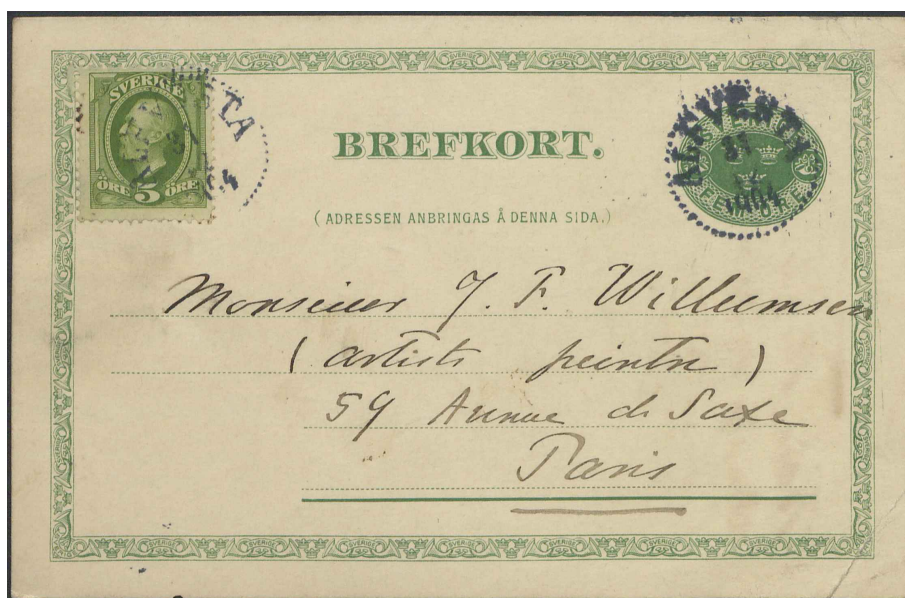 SVERIGE
ÖRE 5 ÖRE
BREFKORT.
ALFVESTA
1904
FEM ÖRE
(ADRESSEN ANBRINGAS Å DENNA SIDA.)
Monsieur J. F. Willumsen
(artiste peintre)
59 Avenue de Saxe
Paris